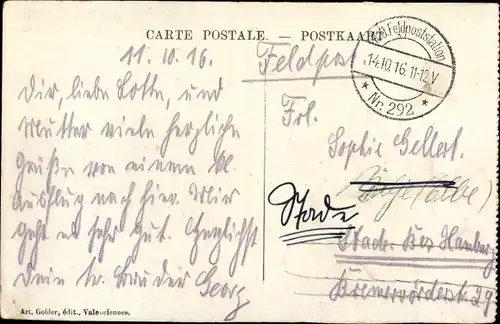 CARTE POSTALE. — POSTKARTE
11.10.16.
Feldpost
Dir, liebe Lotte, und
Mutter viele herzliche
Grüße von einem kl.
Ausflug nach hier. Mir
geht es sehr gut. Herzlichst
Dein tr. Bruder Georg
Feldpoststation
14.10.16. 11-12 V
* Nr. 292 *
Frl.
Sophie Gellert.
(Elbe)
Stade
Stade Bez Hamburg
Bremervörderst. 29
Art. Golder, édit., Valenciennes.